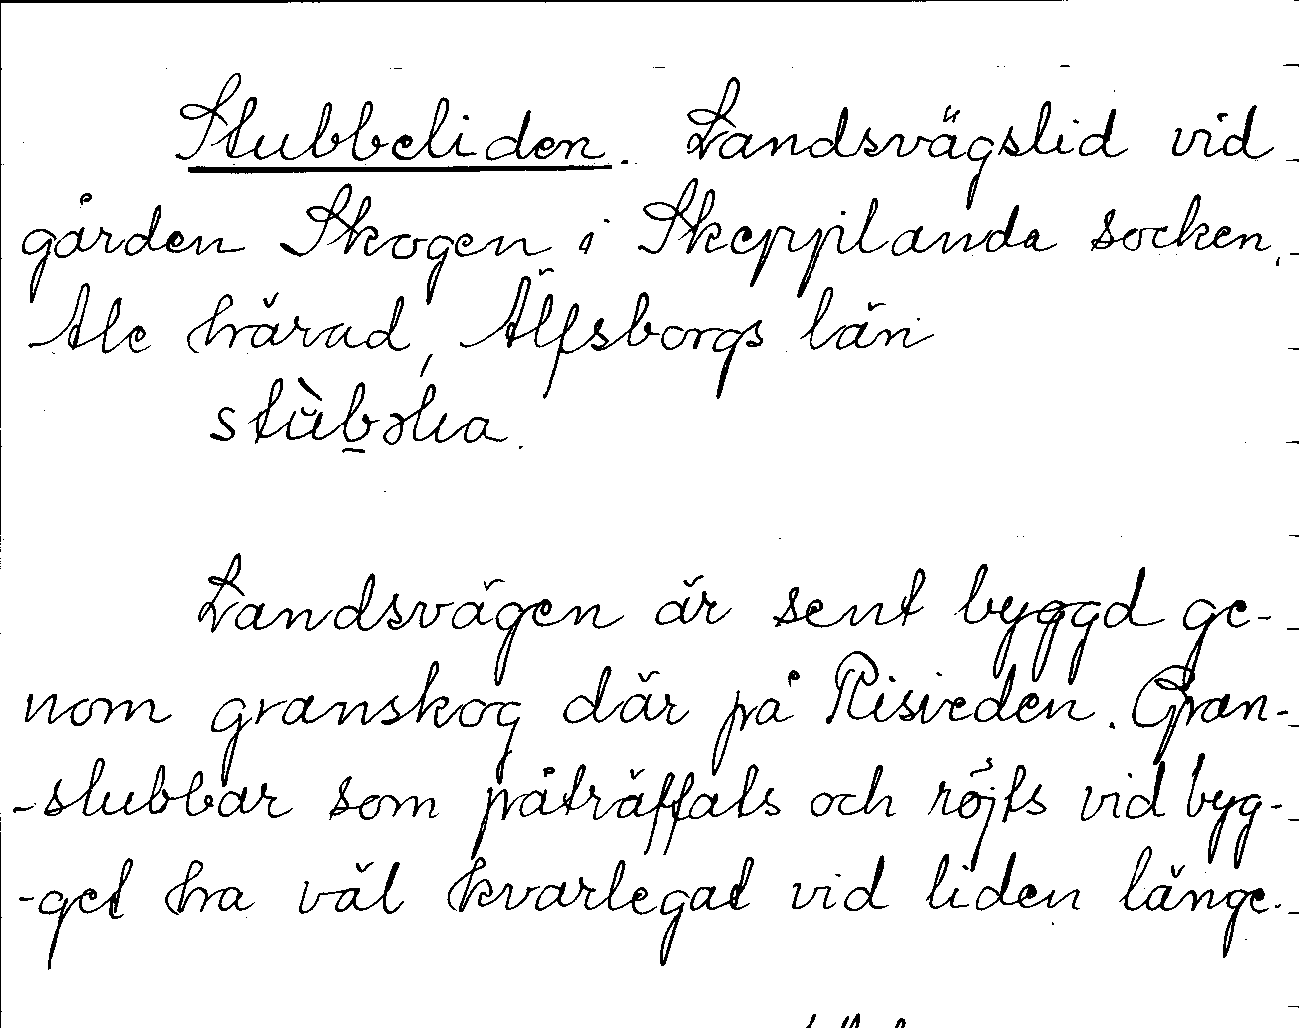 Stubbeliden. Landsvägslid vid
gården Skogen i Skepplanda socken,
Ale härad, Älfsborgs län
Landsvägen är sent byggd ge-
nom granskog där på Risveden. Gran-
-stubbar som påträffats och röjts vid byg-
-get ha väl kvarlegat vid liden länge.